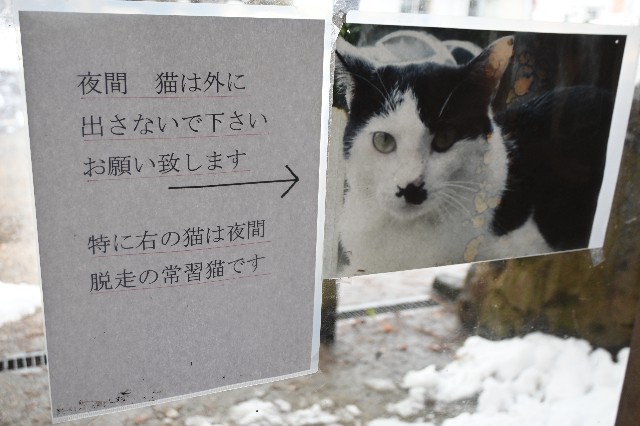 夜間　猫は外に
出さないで下さい
お願い致します
特に右の猫は夜間
脱走の常習猫です